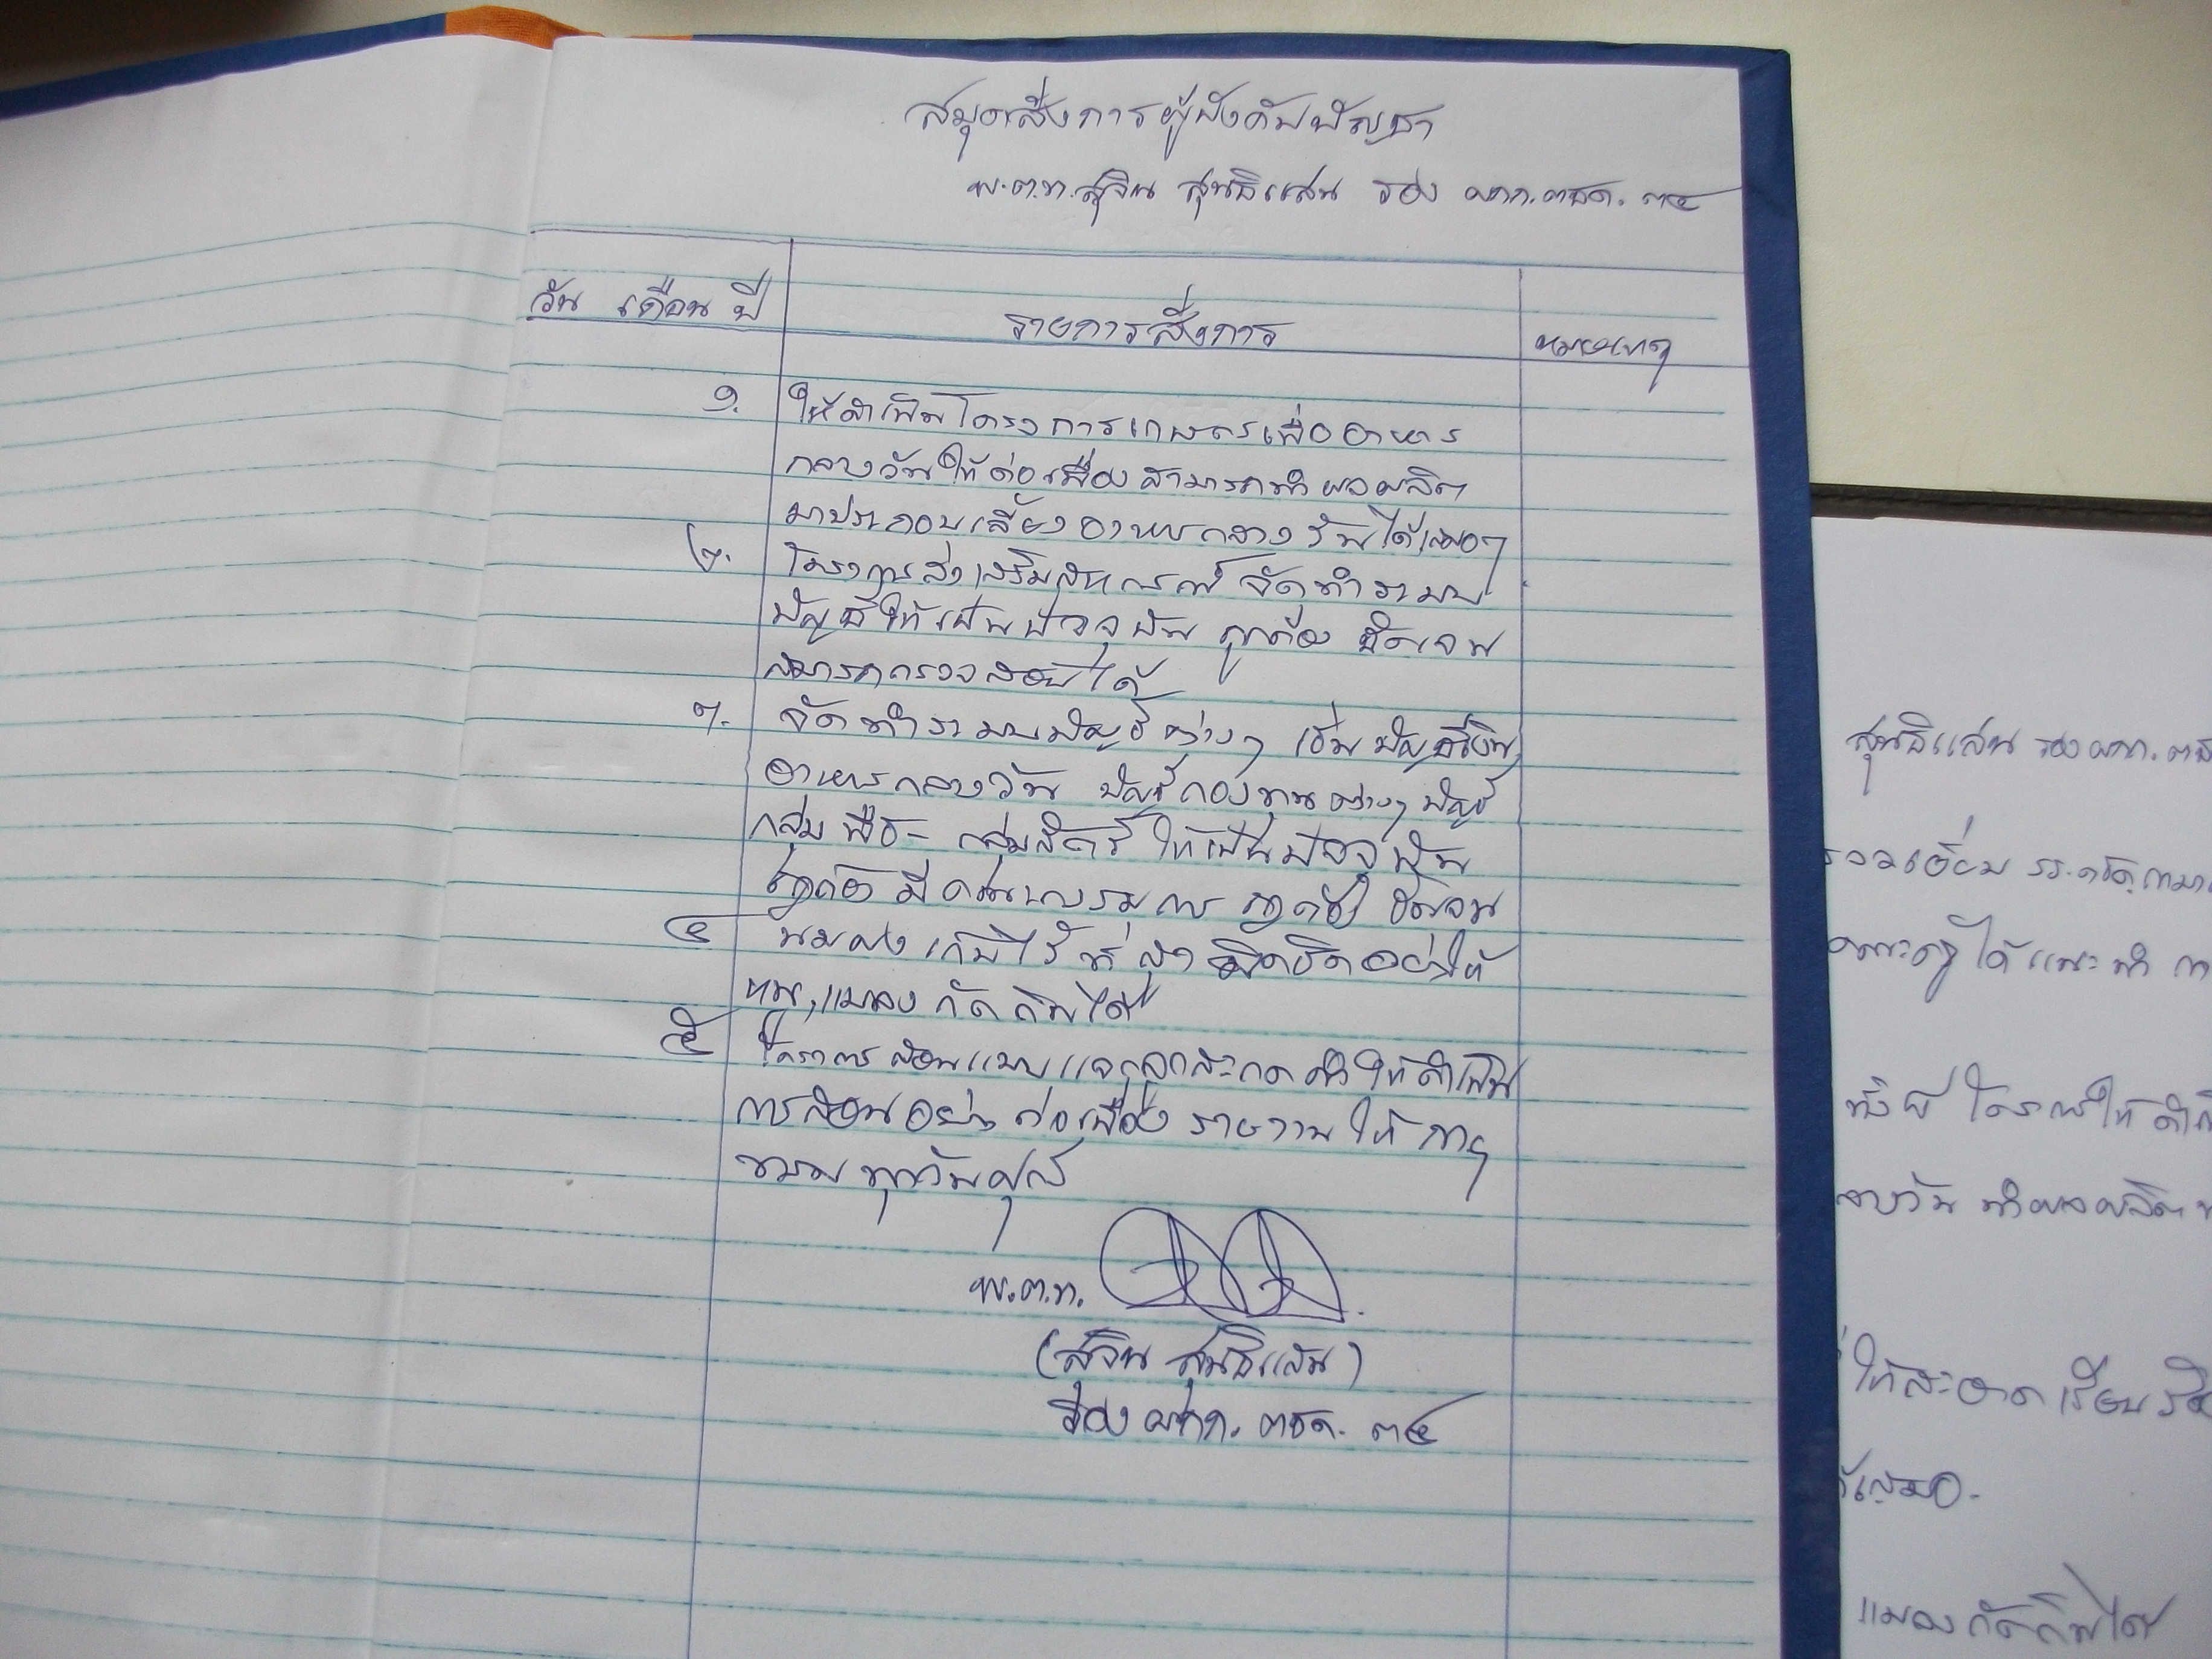 สมุดสั่งการผู้บังคับบัญชา
พ.ต.ท.สุจิน สุนธิแสน รอง ผกก.ตชด. ๓๔
วัน เดือน ปี
รายการสั่งการ
หมายเหตุ
๑. ให้ดำเนินโครงการเกษตรเพื่ออาหาร
กลางวันให้ต่อเนื่องสามารถนำผลผลิต
มาประกอบเลี้ยงอาหารกลางวันได้
๒. โครงการส่งเสริมสหกรณ์ จัดทำระบบ
บัญชีให้เป็นปัจจุบัน ถูกต้อง ชัดเจน
สามารถตรวจสอบได้
๓. จัดทำระบบบัญชีต่างๆ เช่น บัญชีเงิน
อาหารกลางวัน บัญชีกองทุนต่างๆ บัญชี
กลุ่มพืช - กลุ่มสัตว์ ให้เป็นปัจจุบัน
มีคณะกรรมการ ชัดเจน
๔ นมผง เก็บไว้ที่ มิดชิดอย่าให้
หนู, แมลง กัดกินได้
๕ โครงการสอนแบบแจกลูกสะกดคำให้ดำเนิน
การสอนอย่างต่อเนื่อง รายงานให้
ทราบทุกวันศุกร์
พ.ต.ท.
(สุจิน สุนธิแสน)
รอง ผกก. ตชด. ๓๔
สุนธิแสน รอง ผกก. ตช
ได้แนะนำ
โครงการให้
วัน นำผลผลิต
ให้สะอาด เรียบร้
เสมอ.
แมลงกัดกินได้